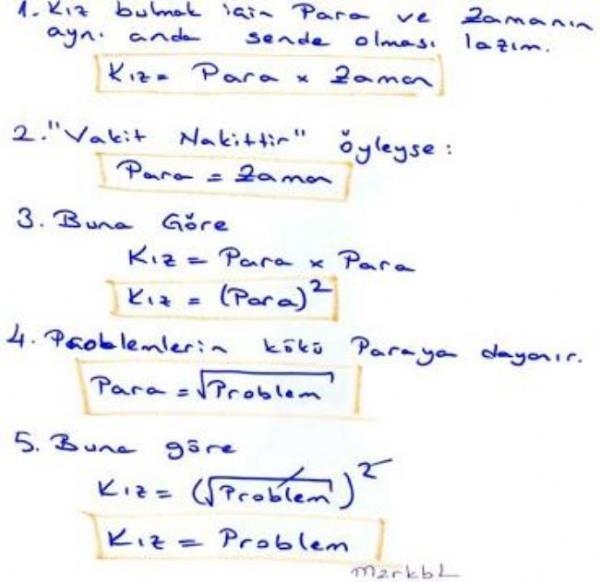 1. Kız bulmak için Para ve Zamanın
aynı anda sende olması lazım.
Kız = Para x Zaman
2. "Vakit Nakittir" öyleyse :
Para = Zaman
3. Buna Göre
Kız = Para x Para
Kız = (Para)²
4. Problemlerin kökü Paraya dayanır.
Para = √Problem
5. Buna göre
Kız = (√Problem)²
Kız = Problem